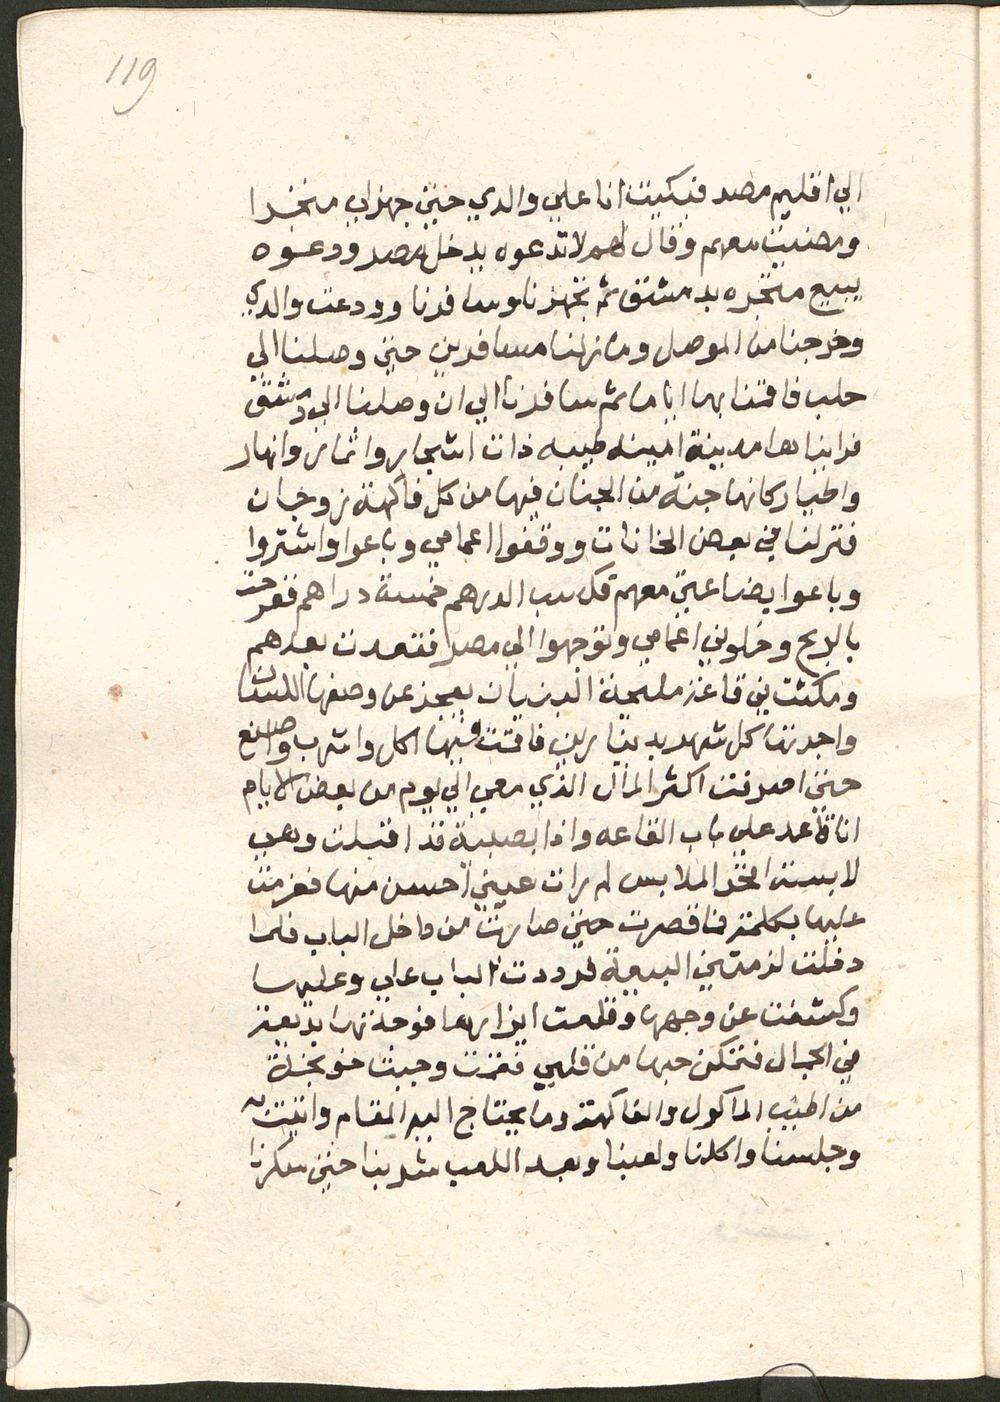 119
الي اقليم مصر فبكيت انا علي والدي حتي جهزلي متجرا
ومضيت معهم وقال لهم لا تدعوه يدخل مصر ودعوه
يبيع متجره بدمشق ثم تجهزنا وسافرنا وودعت والدي
وخرجنا من الموصل وما زلنا مسافرين حتي وصلنا الي
حلب فاقمنا بها اياما ثم سافرنا الي ان وصلنا الي دمشق
فراينا مدينة امينه طيبه ذات اشجار واثمار وانهار
واطيار كانها جنة من الجنان فيها من كل فاكهة زوجان
فنزلنا في بعض الخانات ووقفوا اعمامي وباعوا واشتروا
وباعوا بضاعتي معهم فكسب الدرهم خمسة دراهم ففرحت
بالربح وخلوني اعمامي وتوجهوا الي مصر فقعدت بعدهم
ومكثت في قاعة مليحة البنيان يعجز عن وصفها اللسان
واجرتها كل شهر بدينارين فاقمت فيها اكل واشرب واصنع
حتي اصرفت اكثر المال الذي معي الي يوم من بعض الايام
انا قاعد علي باب القاعه واذا بصبية قد اقبلت وهي
لابسة افخر الملابس لم رات عيني احسن منها فعزمت
عليها بكلمة فما قصرت حتي صارت من داخل الباب فلما
دخلت لزمتني البيعة فرددت الباب علي وعليها
وكشفت عن وجهها وقلعت ايزارها فوجدتها بديعة
في الجمال فتمكن حبها من قلبي فقمت وجيت خونجة
من اطيب الماكول والفاكهة وما يحتاج اليه المقام واتيت به
وجلسنا واكلنا ولعبنا وبعد اللعب شربنا حتي سكرنا